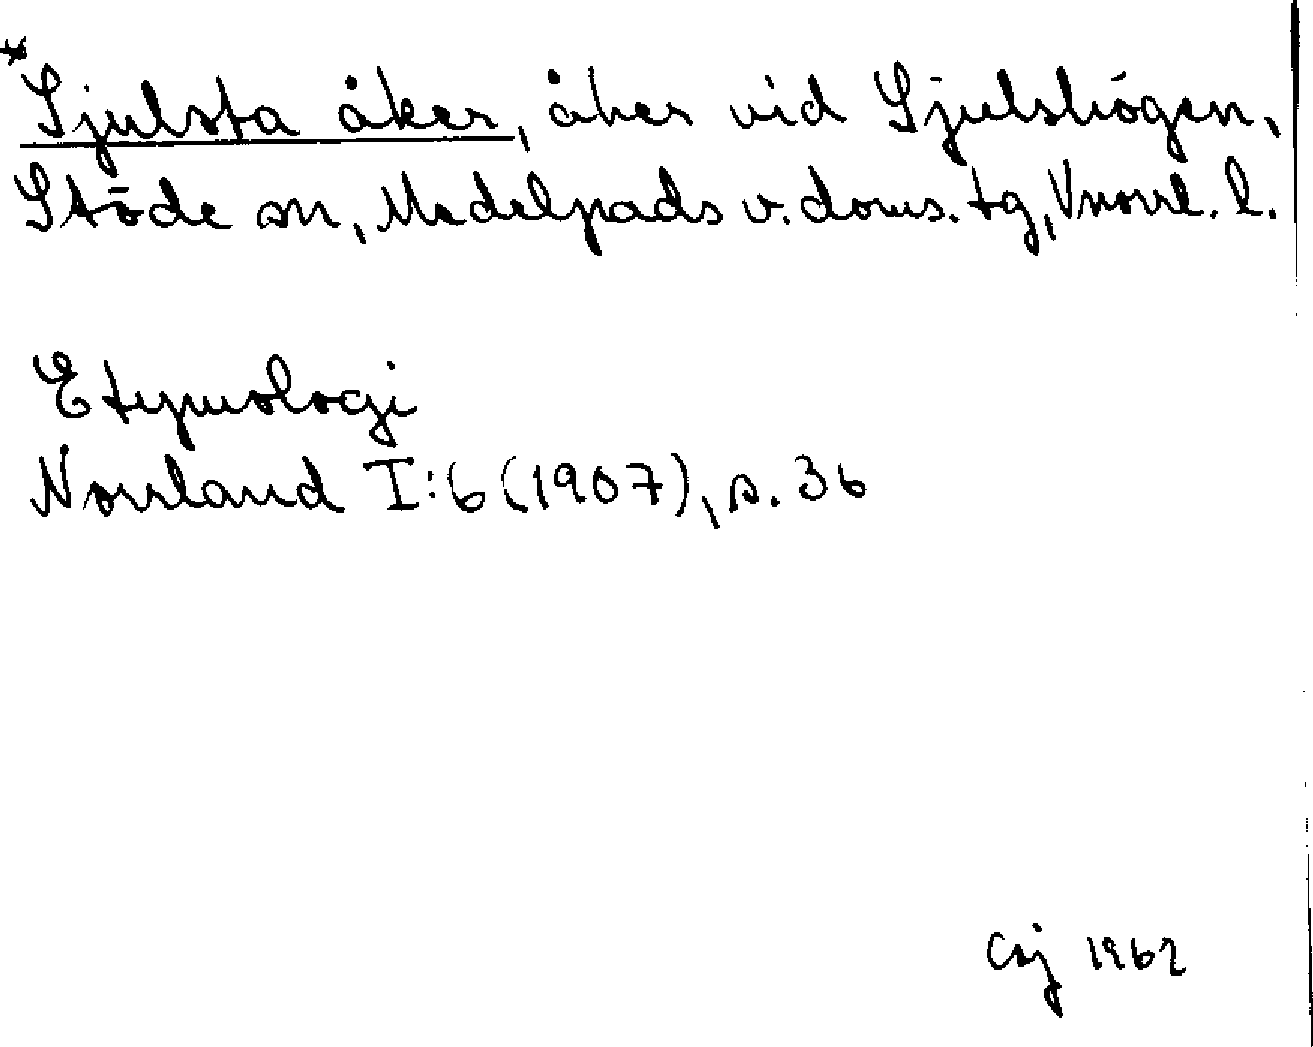 *Sjulsta åker, åker vid Sjulshögen,
Stöde sn, Medelpads v. doms. tg, Vnorrl. l.
Etymologi
Norrland I:6 (1907), s. 36
Csj 1962